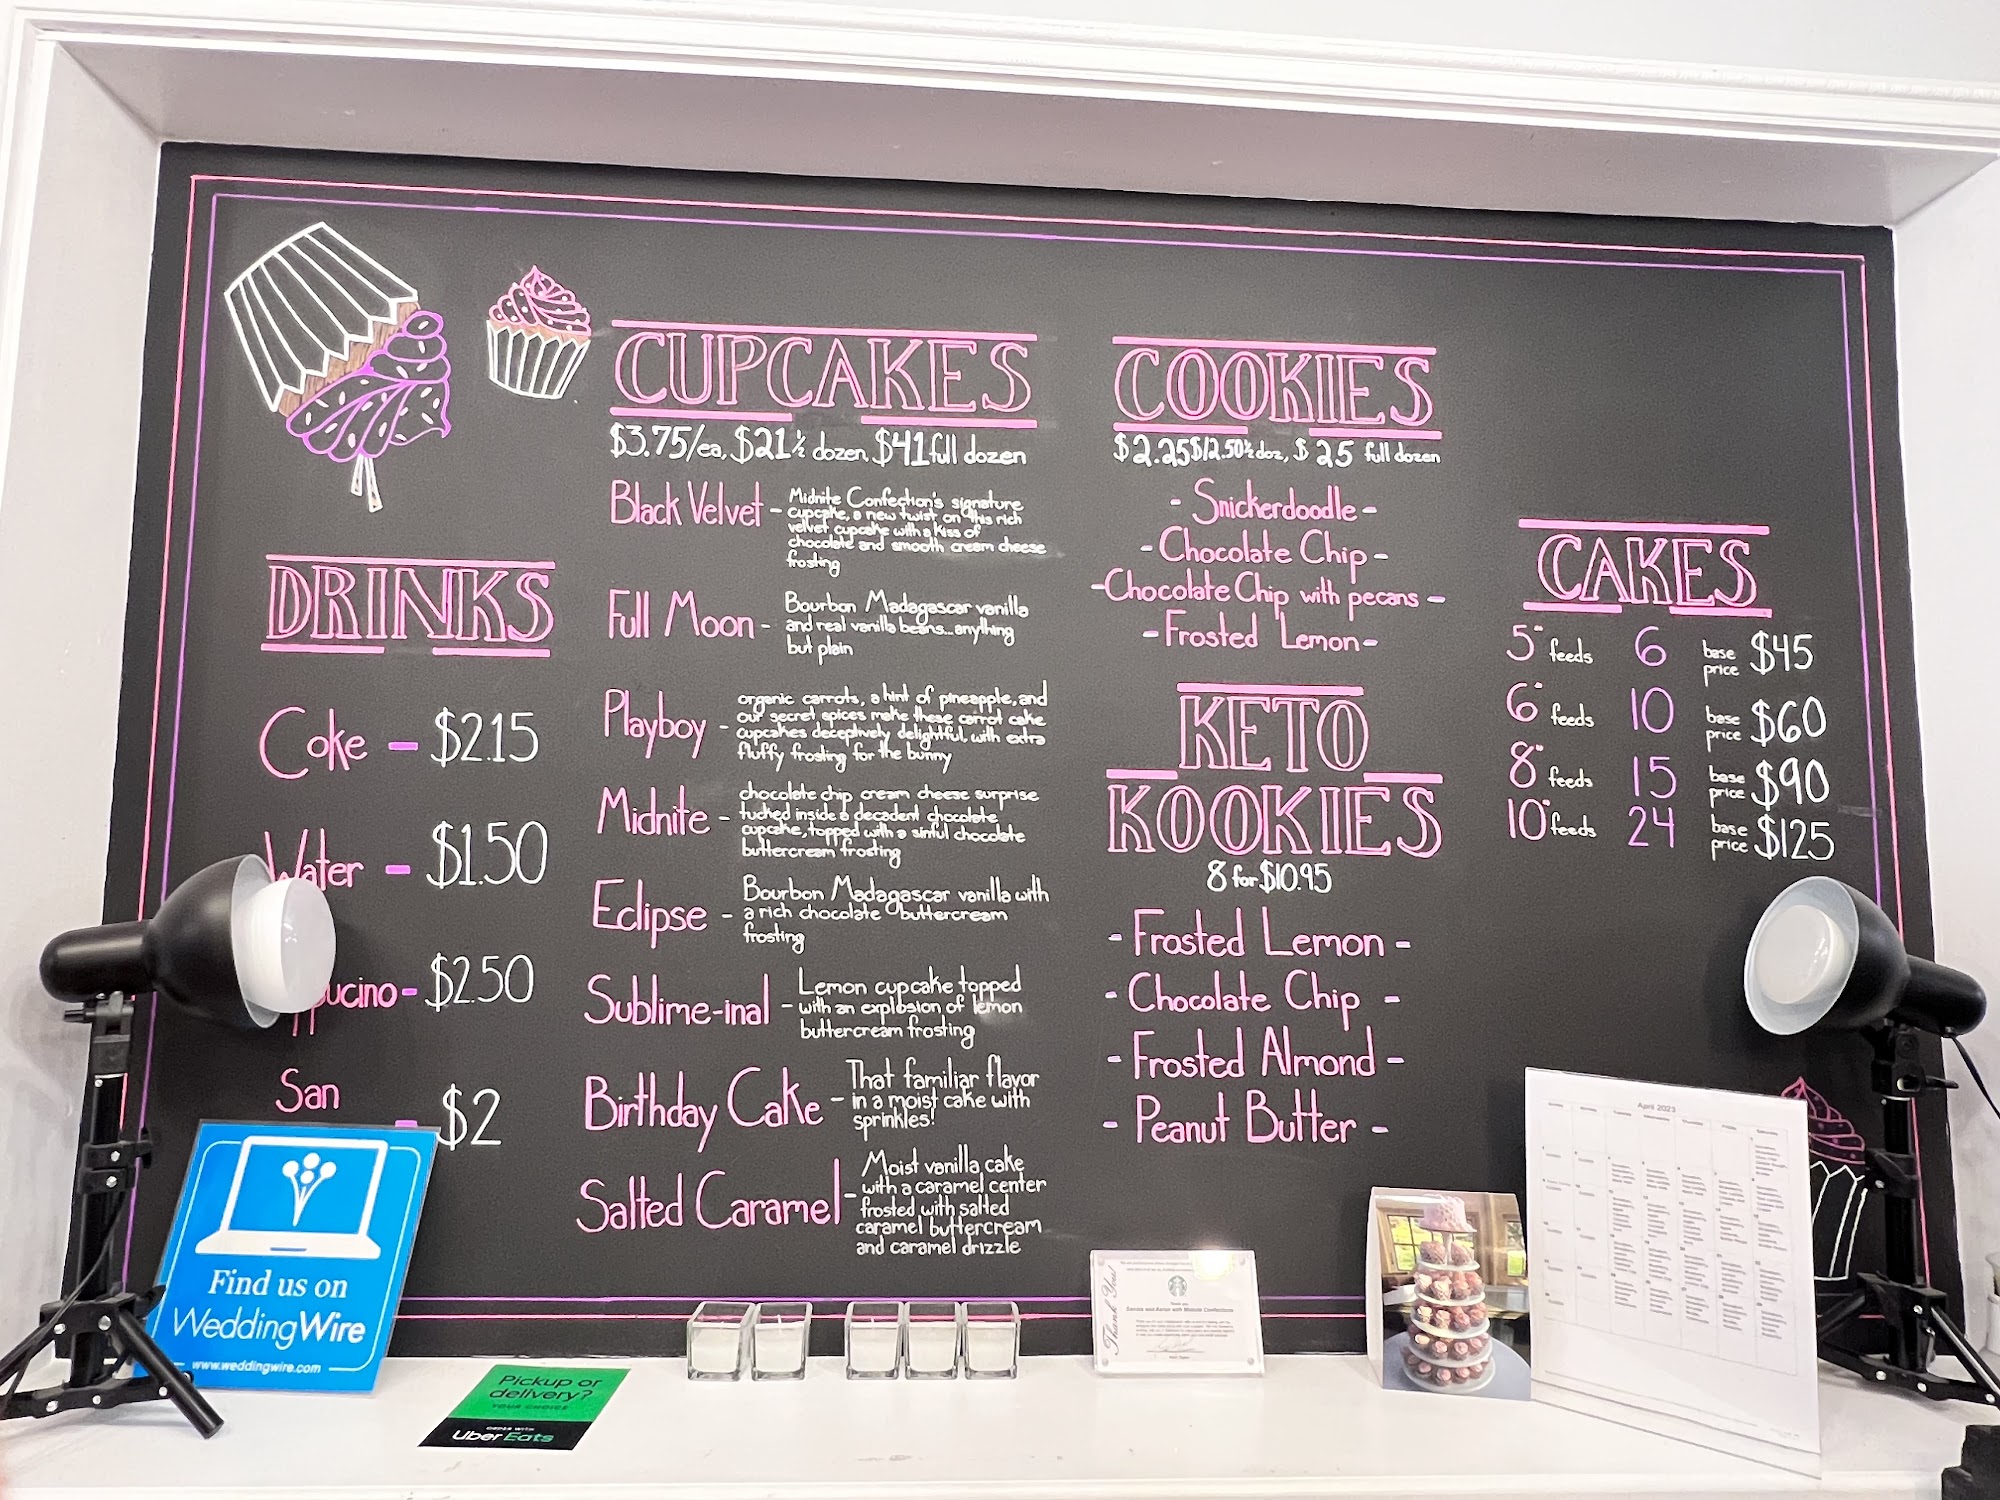 CUPCAKES
$3.75/ea, $21 ½ dozen, $41 full dozen
Black Velvet - Midnite Confection's signature
cupcake, a new twist on this rich
velvet cupcake with a kiss of
chocolate and smooth cream cheese
frosting
Full Moon - Bourbon Madagascar vanilla
and real vanilla beans...anything
but plain
Playboy - organic carrots, a hint of pineapple, and
our secret spices make these carrot cake
cupcakes deceptively delightful, with extra
fluffy frosting for the bunny
Midnite - chocolate chip cream cheese surprise
tucked inside a decadent chocolate
cupcake, topped with a sinful chocolate
buttercream frosting
Eclipse - Bourbon Madagascar vanilla with
a rich chocolate buttercream
frosting
Sublime-inal - Lemon cupcake topped
with an explosion of lemon
buttercream frosting
Birthday Cake - That familiar flavor
in a moist cake with
sprinkles!
Salted Caramel - Moist vanilla cake
with a caramel center
frosted with salted
caramel buttercream
and caramel drizzle
DRINKS
Coke - $2.15
Water - $1.50
ppucino - $2.50
San
- $2
COOKIES
$2.25 $12.50 ½ doz, $25 full dozen
- Snickerdoodle -
- Chocolate Chip -
- Chocolate Chip with pecans -
- Frosted Lemon -
KETO
KOOKIES
8 for $10.95
- Frosted Lemon -
- Chocolate Chip -
- Frosted Almond -
- Peanut Butter -
CAKES
5" feeds 6 base price $45
6" feeds 10 base price $60
8" feeds 15 base price $90
10" feeds 24 base price $125
Find us on
WeddingWire
www.weddingwire.com
Pickup or
delivery?
YOUR CHOICE
ORDER WITH
Uber Eats
Thank You!
April 2023